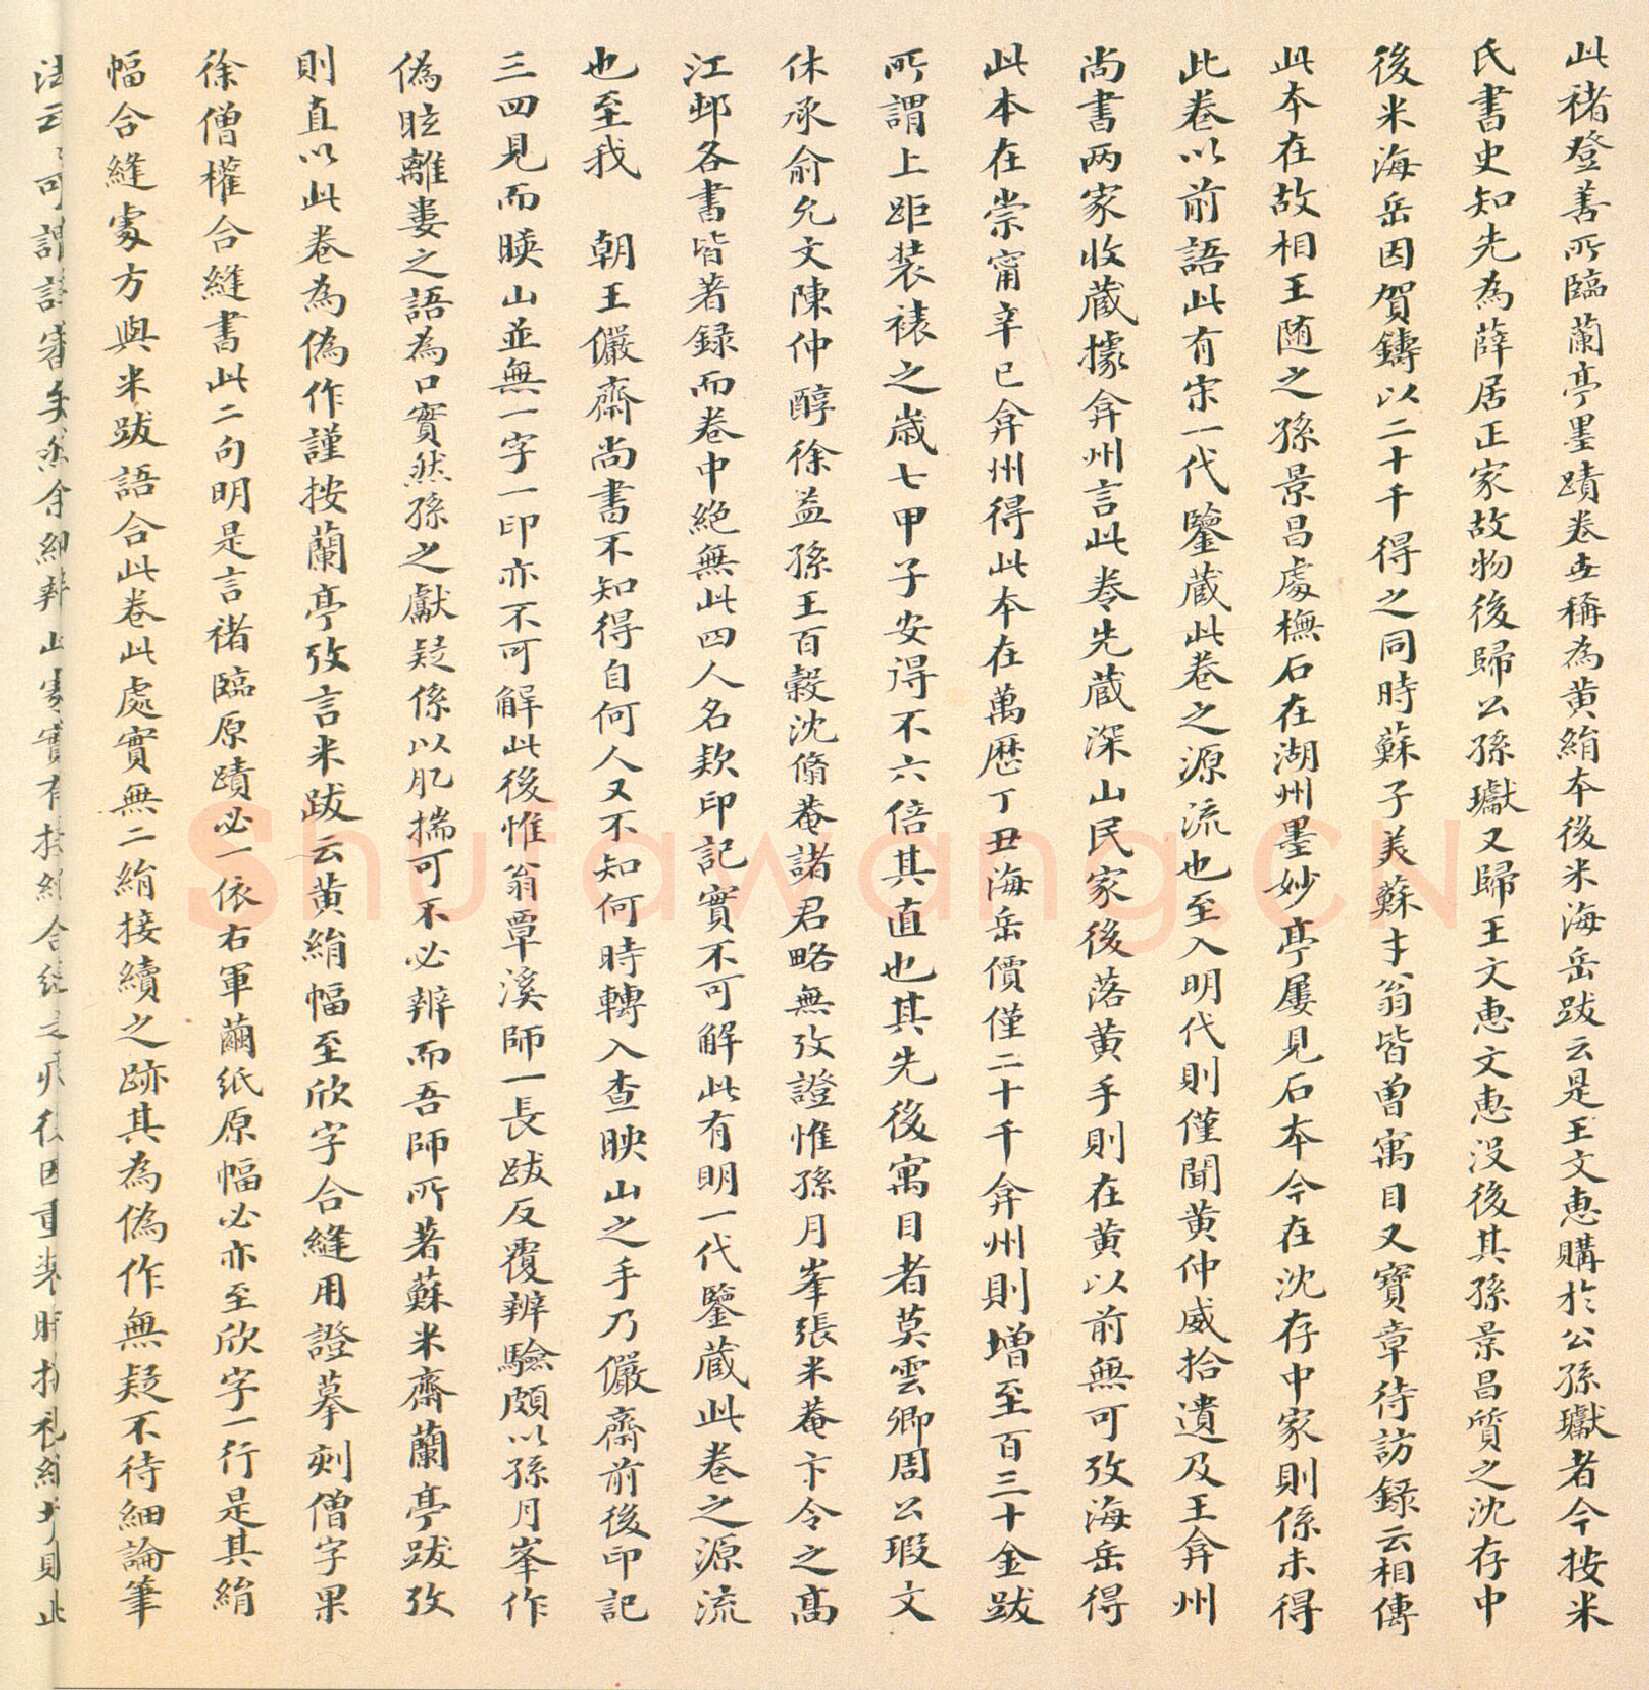 此褚登善所臨蘭亭墨蹟卷世稱為黃絹本後米海岳跋云是王文惠購於公孫瓛者今按米
氏書史知先為薛居正家故物後歸公孫瓛又歸王文惠文惠沒後其孫景昌質之沈存中
後米海岳因賀鑄以二十千得之同時蘇子美蘇才翁皆曾寓目又寶章待訪錄云相傳
此本在故相王隨之孫景昌處橅石在湖州墨妙亭屢見石本今在沈存中家則係未得
此卷以前語此有宋一代鑒蔵此卷之源流也至入明代則僅聞黃仲威拾遺及王弇州
尚書两家收蔵據弇州言此卷先蔵深山民家後落黃手則在黃以前無可攷海岳得
此本在崇甯辛巳弇州得此本在萬歷丁丑海岳價僅二十千弇州則增至百三十金跋
所謂上距装裱之歲七甲子安得不六倍其直也其先後寓目者莫雲卿周公瑕文
休承俞允文陳仲醇徐益孫王百穀沈脩菴諸君略無攷證惟孫月峯張米菴卞令之高
江邨各書皆著録而卷中絕無此四人名欵印記實不可解此有明一代鑒蔵此卷之源流
也至我 朝王儼齋尚書不知得自何人又不知何時轉入查映山之手乃儼齋前後印記
三四見而暎山並無一字一印亦不可解此後惟翁覃溪師一長跋反覆辨驗頗以孫月峯作
偽眩離婁之語為口實然孫之獻疑係以肊揣可不必辨而吾師所著蘇米齋蘭亭跋攷
則直以此卷為偽作謹按蘭亭攷言米跋云黃絹幅至欣字合縫用證摹刻僧字果
徐僧權合縫書此二句明是言褚臨原蹟必一依右軍繭紙原幅必亦至欣字一行是其絹
幅合縫處方與米跋語合此卷此處實無二絹接續之跡其為偽作無疑不待細論筆
法云云可謂詳審矣然余細辨此
Shufawang.CN